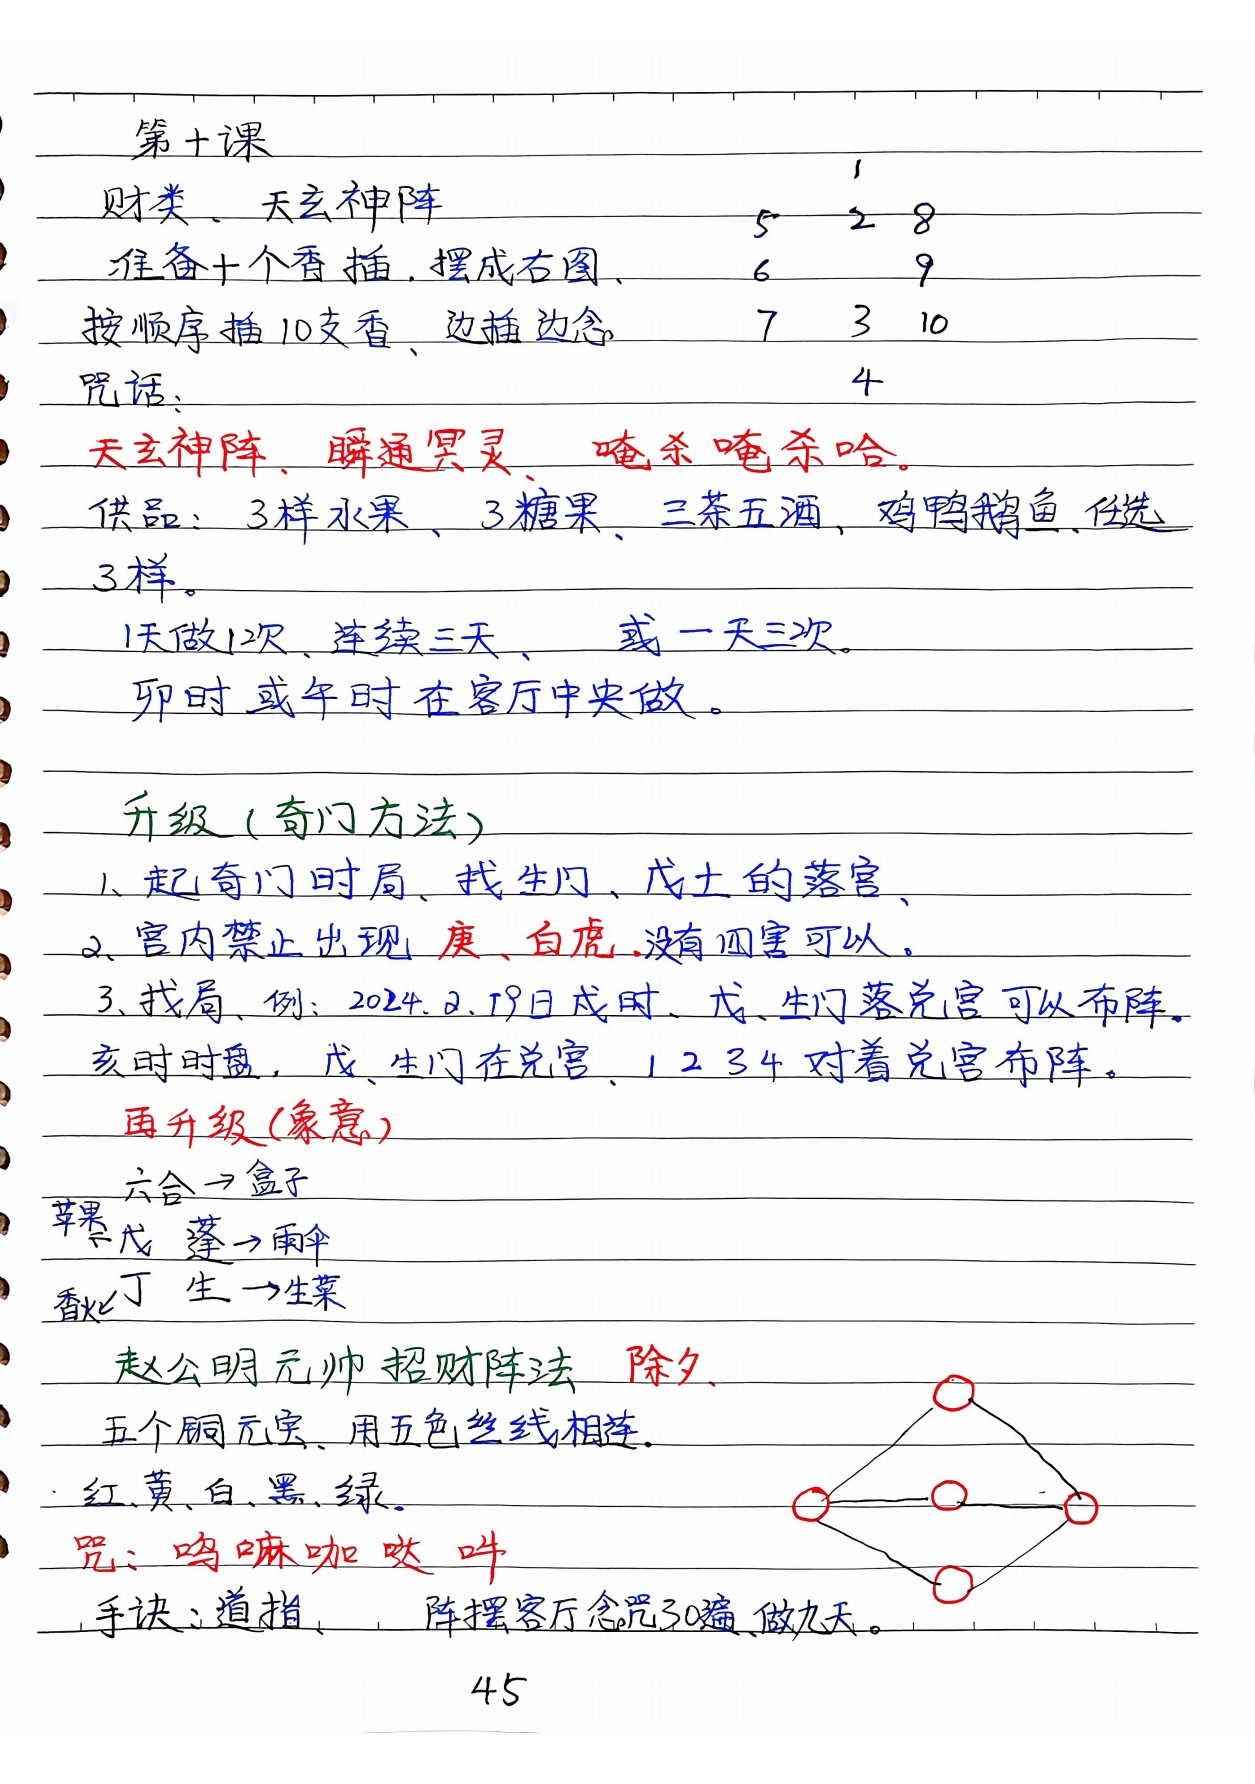 第十课
财类、天玄神阵
准备十个香插.摆成右图、
按顺序插10支香、边插边念。
咒话:
1
5 2 8
6 9
7 3 10
4
天玄神阵、瞬通冥灵、唵杀唵杀哈。
供品:3样水果、3糖果、三茶五酒、鸡鸭鹅鱼、任选
3样。
1天做12次、连续三天、或一天三次。
卯时或午时在客厅中央做。
升级(奇门方法)
1、起奇门时局、找生门、戊土的落宫、
2、宫内禁止出现庚、白虎.没有四害可以。
3、找局、例:2024.2.19日戌时、戊、生门落兑宫可以布阵。
亥时时盘,戊、生门在兑宫、1234对着兑宫布阵。
再升级(象意)
六合→盒子
苹果 戊 蓬→雨伞
香火 丁 生→生菜
赵公明元帅招财阵法 除夕、
五个铜元宝、用五色丝线相连.
红、黄、白、黑、绿.
咒:呜嘛咖哒吽
手诀:道指、 阵摆客厅念咒30遍、做九天。
45